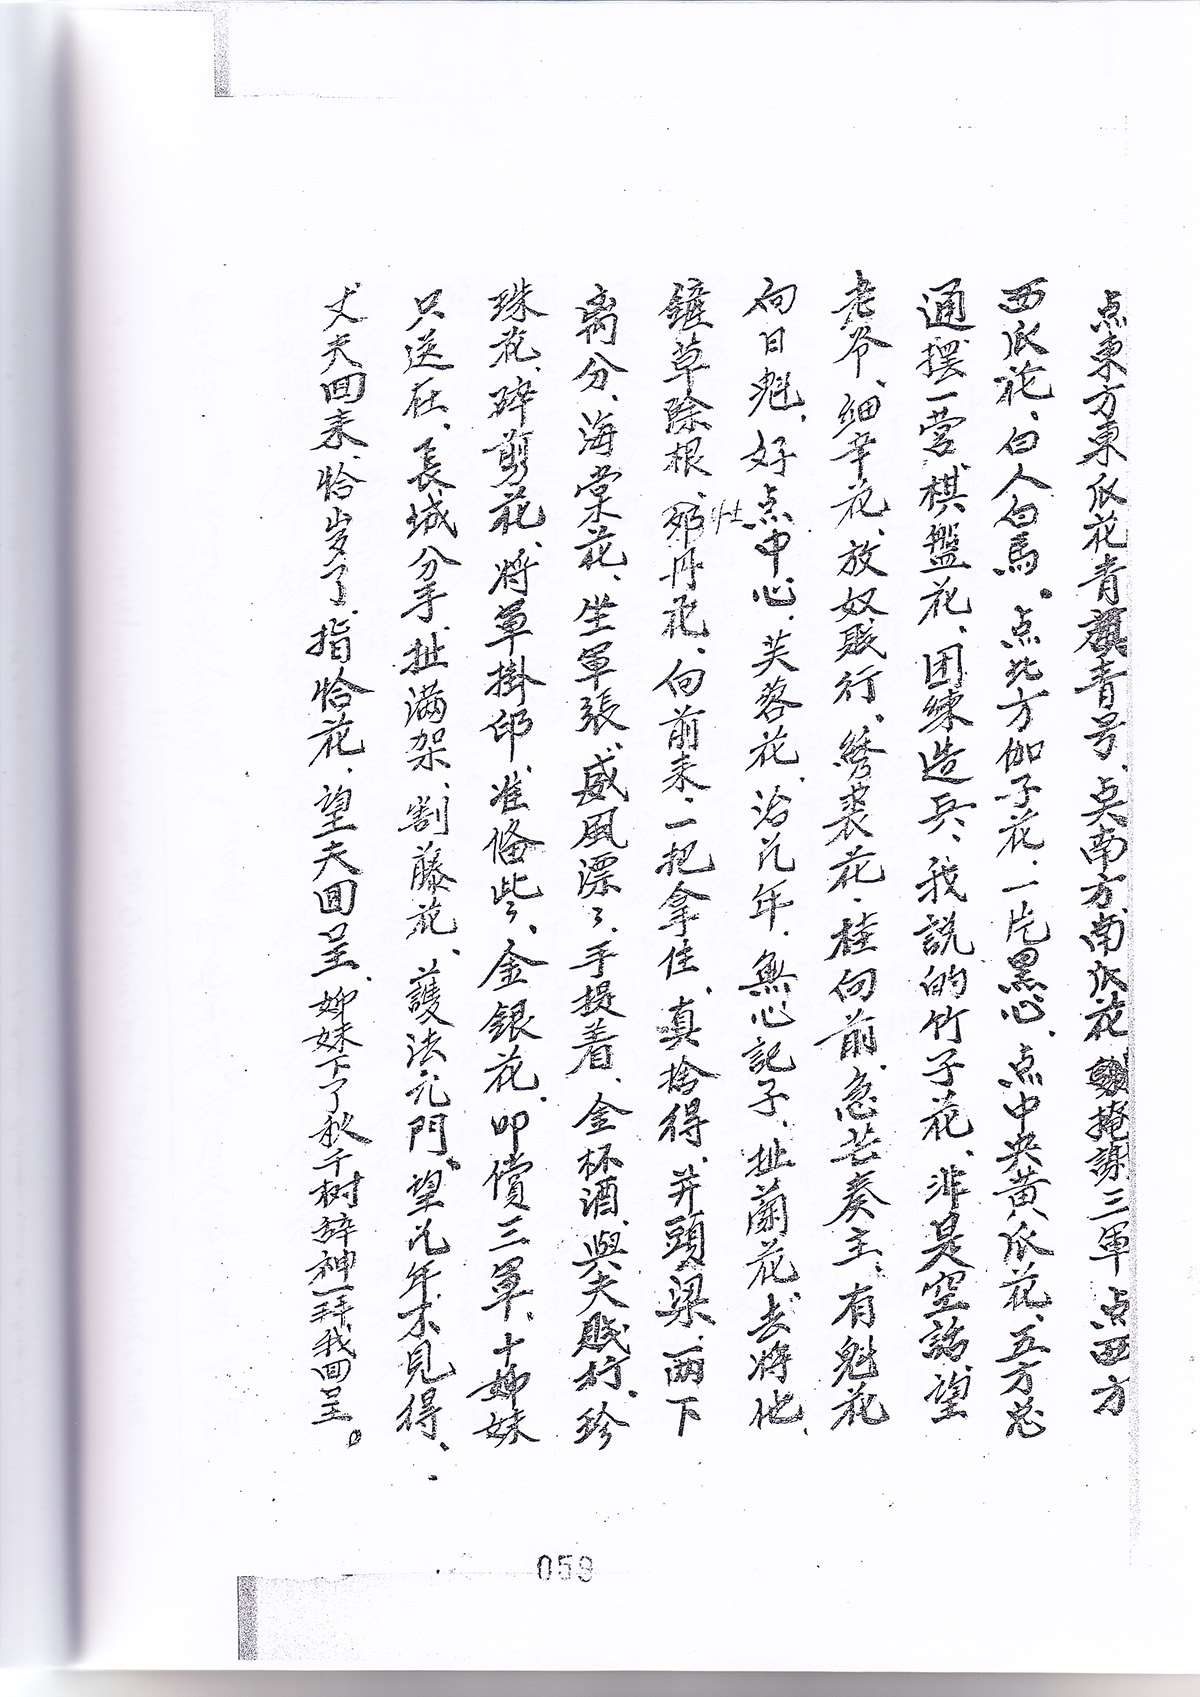 点東方東瓜花青旗青号、点南方南瓜花掩謀三軍点西方
西瓜花、白人白馬。点北方伽子花、一片黑心、点中央黄瓜花、五方总
通摆一营、棋盤花、团練造兵、我説的竹子花、非是空話、望
老爷、细辛花、放奴贱行、绣裘花、桂向前、急芒奏主、有魁花
向日魁、好点中心、芙蓉花、治几年、無心記子、扯蘭花、去将他、
鏟草除根、牡丹花、向前来、一把拿住、真捨得、并頭梁、兩下
离分、海棠花、坐軍張、威風漂々、手提着、金杯酒、與夫贱行、珍
珠花、碎剪花、将草掛印、准偹些々、金銀花、叩償三軍、十姊妹
只送在、長城分手、扯满架、割藤花、護法元門、望几年、不見得、
丈夫回来、恰岁了、指恰花、望夫回呈、姊妹下了秋千树、辞神一拜、我回呈。
059